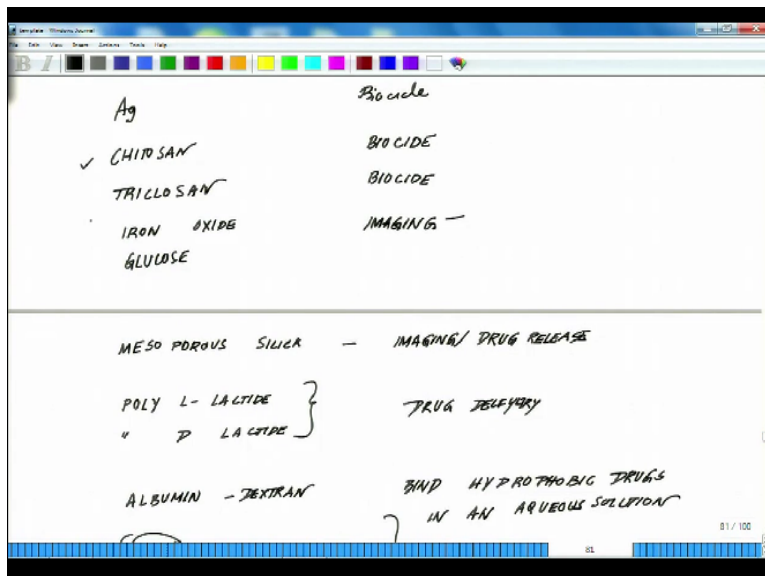 template - Windows Journal
File Edit View Insert Actions Tools Help
B I
Ag Biocide
✓ CHITOSAN BIOCIDE
TRICLOSAN BIOCIDE
IRON OXIDE IMAGING —
GLUCOSE
MESO POROUS SILICA — IMAGING/ DRUG RELEASE
POLY L- LACTIDE } DRUG DELEVERY
" D LACTIDE
ALBUMIN - DEXTRAN BIND HYDROPHOBIC DRUGS
IN AN AQUEOUS SOLUTION
81 / 100
81